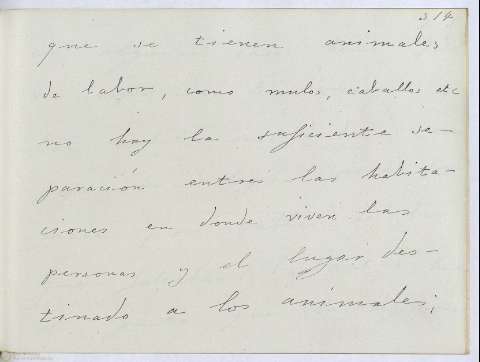 314
que se tienen animales
de labor, como mulos, caballos etc
no hay la suficiente se-
paración entre las habita-
ciones en donde viven las
personas y el lugar des-
tinado a los animales;